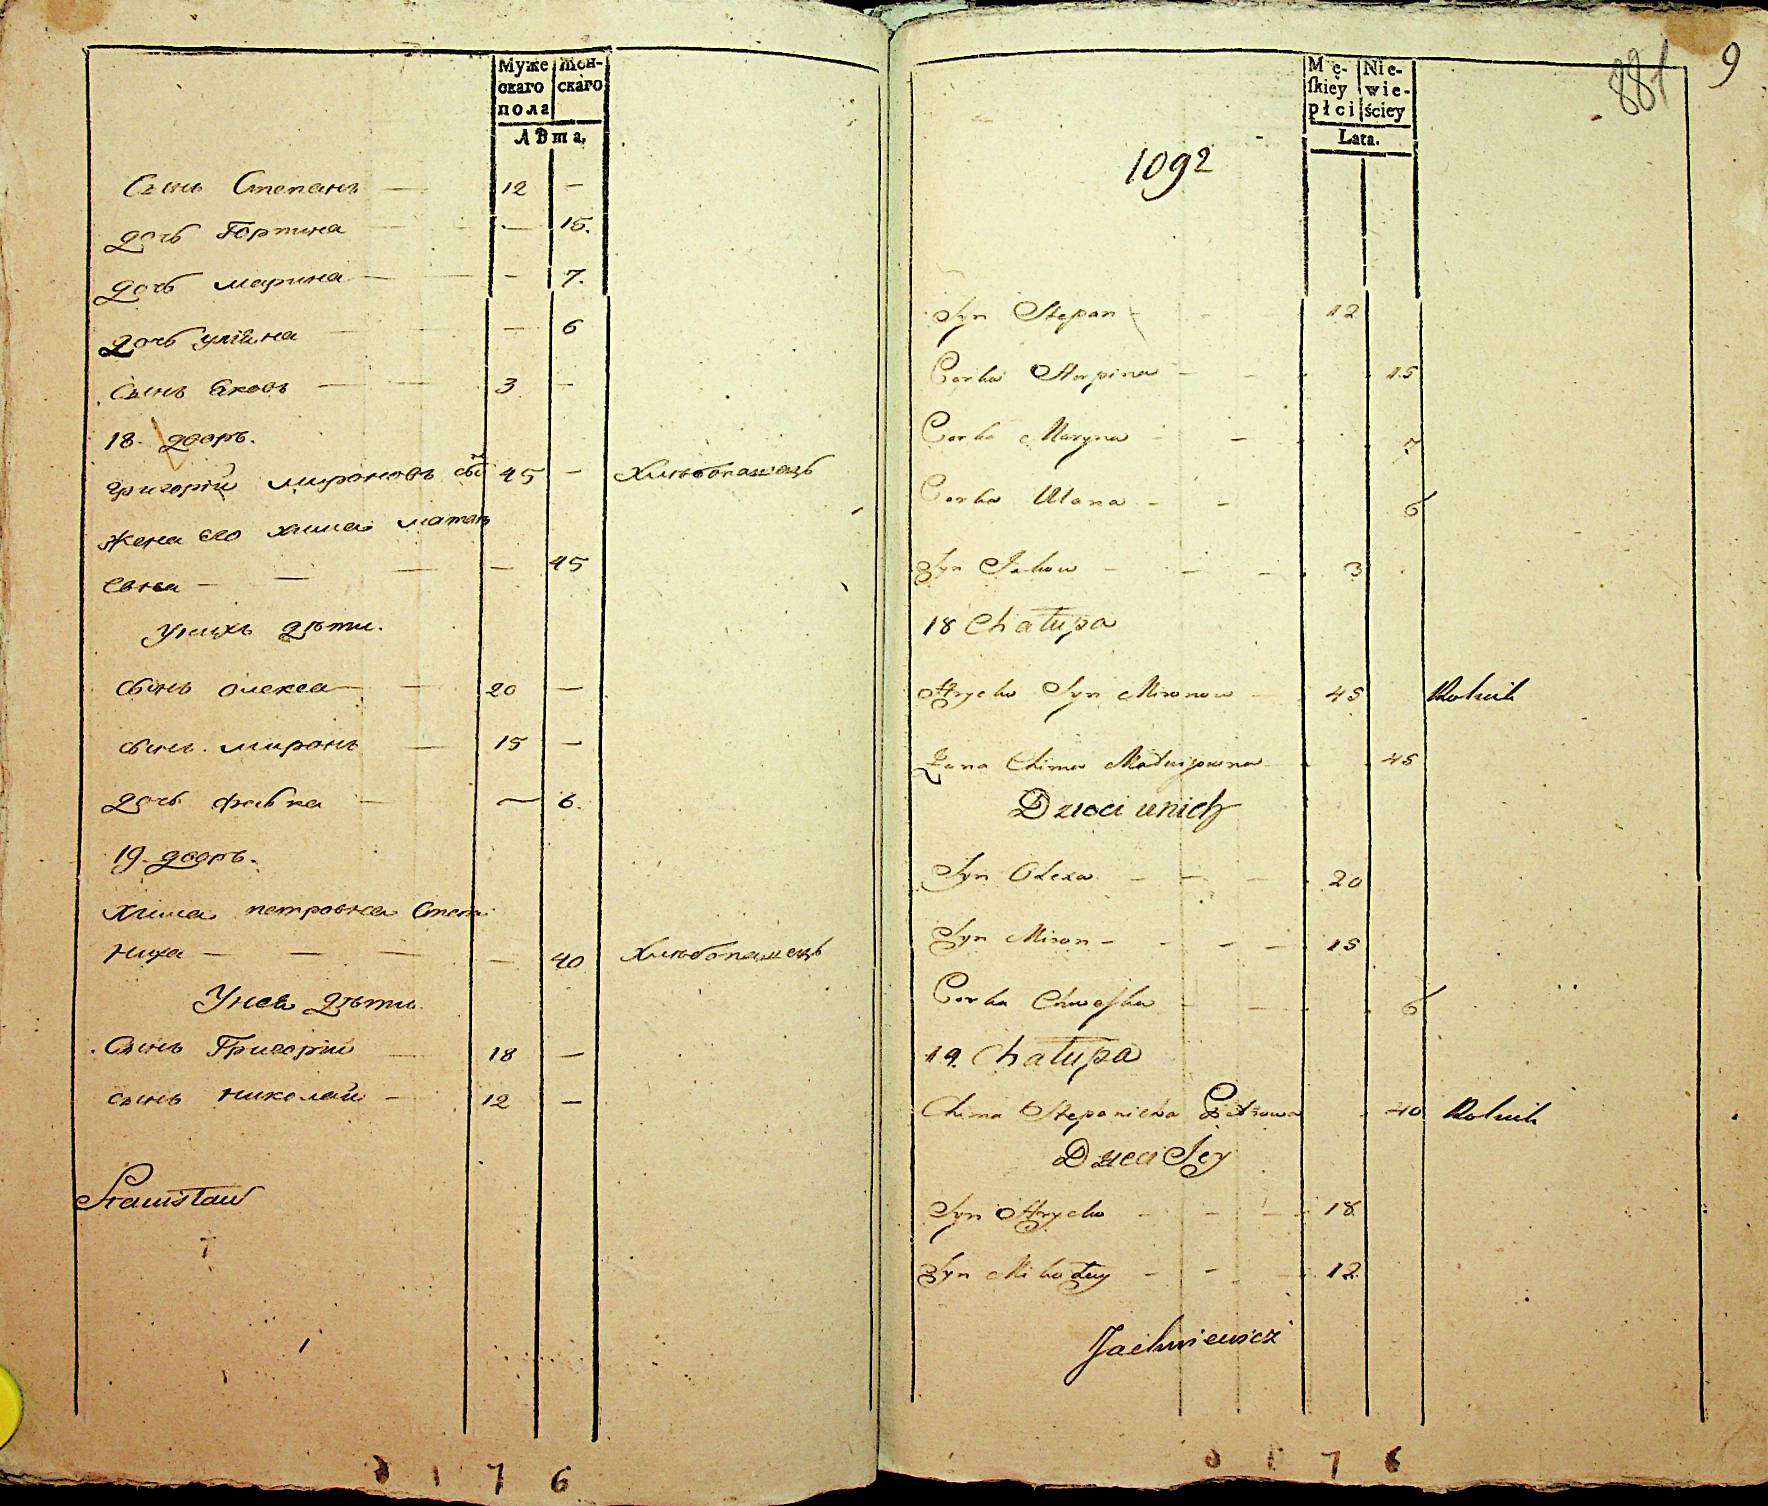 Муже жен-
скаго скаго
пола
Лѣта.
Сынъ Степанъ — 12 —
дочь Горпина — — 15.
дочь марина — — 7.
дочь улiяна — — 6
Сынъ яковъ — 3 —
18. дворъ.
григорiй мироновъ 45 — Хлѣбопашецъ
жена его химa
— — — — 45
У нихъ дѣти.
сынъ олекса — 20 —
сынъ миронъ — 15 —
дочь — — 6.
19. дворъ.
Химa петровна Степа
ниха — — — — 40 Хлѣбопашецъ
У нея дѣти
Сынъ Григорiй — 18 —
сынъ николай — 12 —
Stanisław
0 1 7 6
881 9
Mę- Nie-
ſkiey wie-
płci ściey
Lata.
1092
Syn Stepan - - - 12
Corka Horpina - - 15
Corka Maryna - - 7
Corka Ulana - - 6
Syn Jakow - - - 3
18 Chałupa
Hrycko Syn Mironow - 45 Rolnik
Żona Chima 45
Dzieci unich
Syn Olexa - - - 20
Syn Miron - - - - 15
Corka Chweſka - - 6
19. Chałupa
Chima Stepanicha Piotrowa 40 Rolnik
Dzieci Jey
Syn Hrycko - - - 18
Syn Mikołay - - - 12
Jachniewicz
0 1 7 6